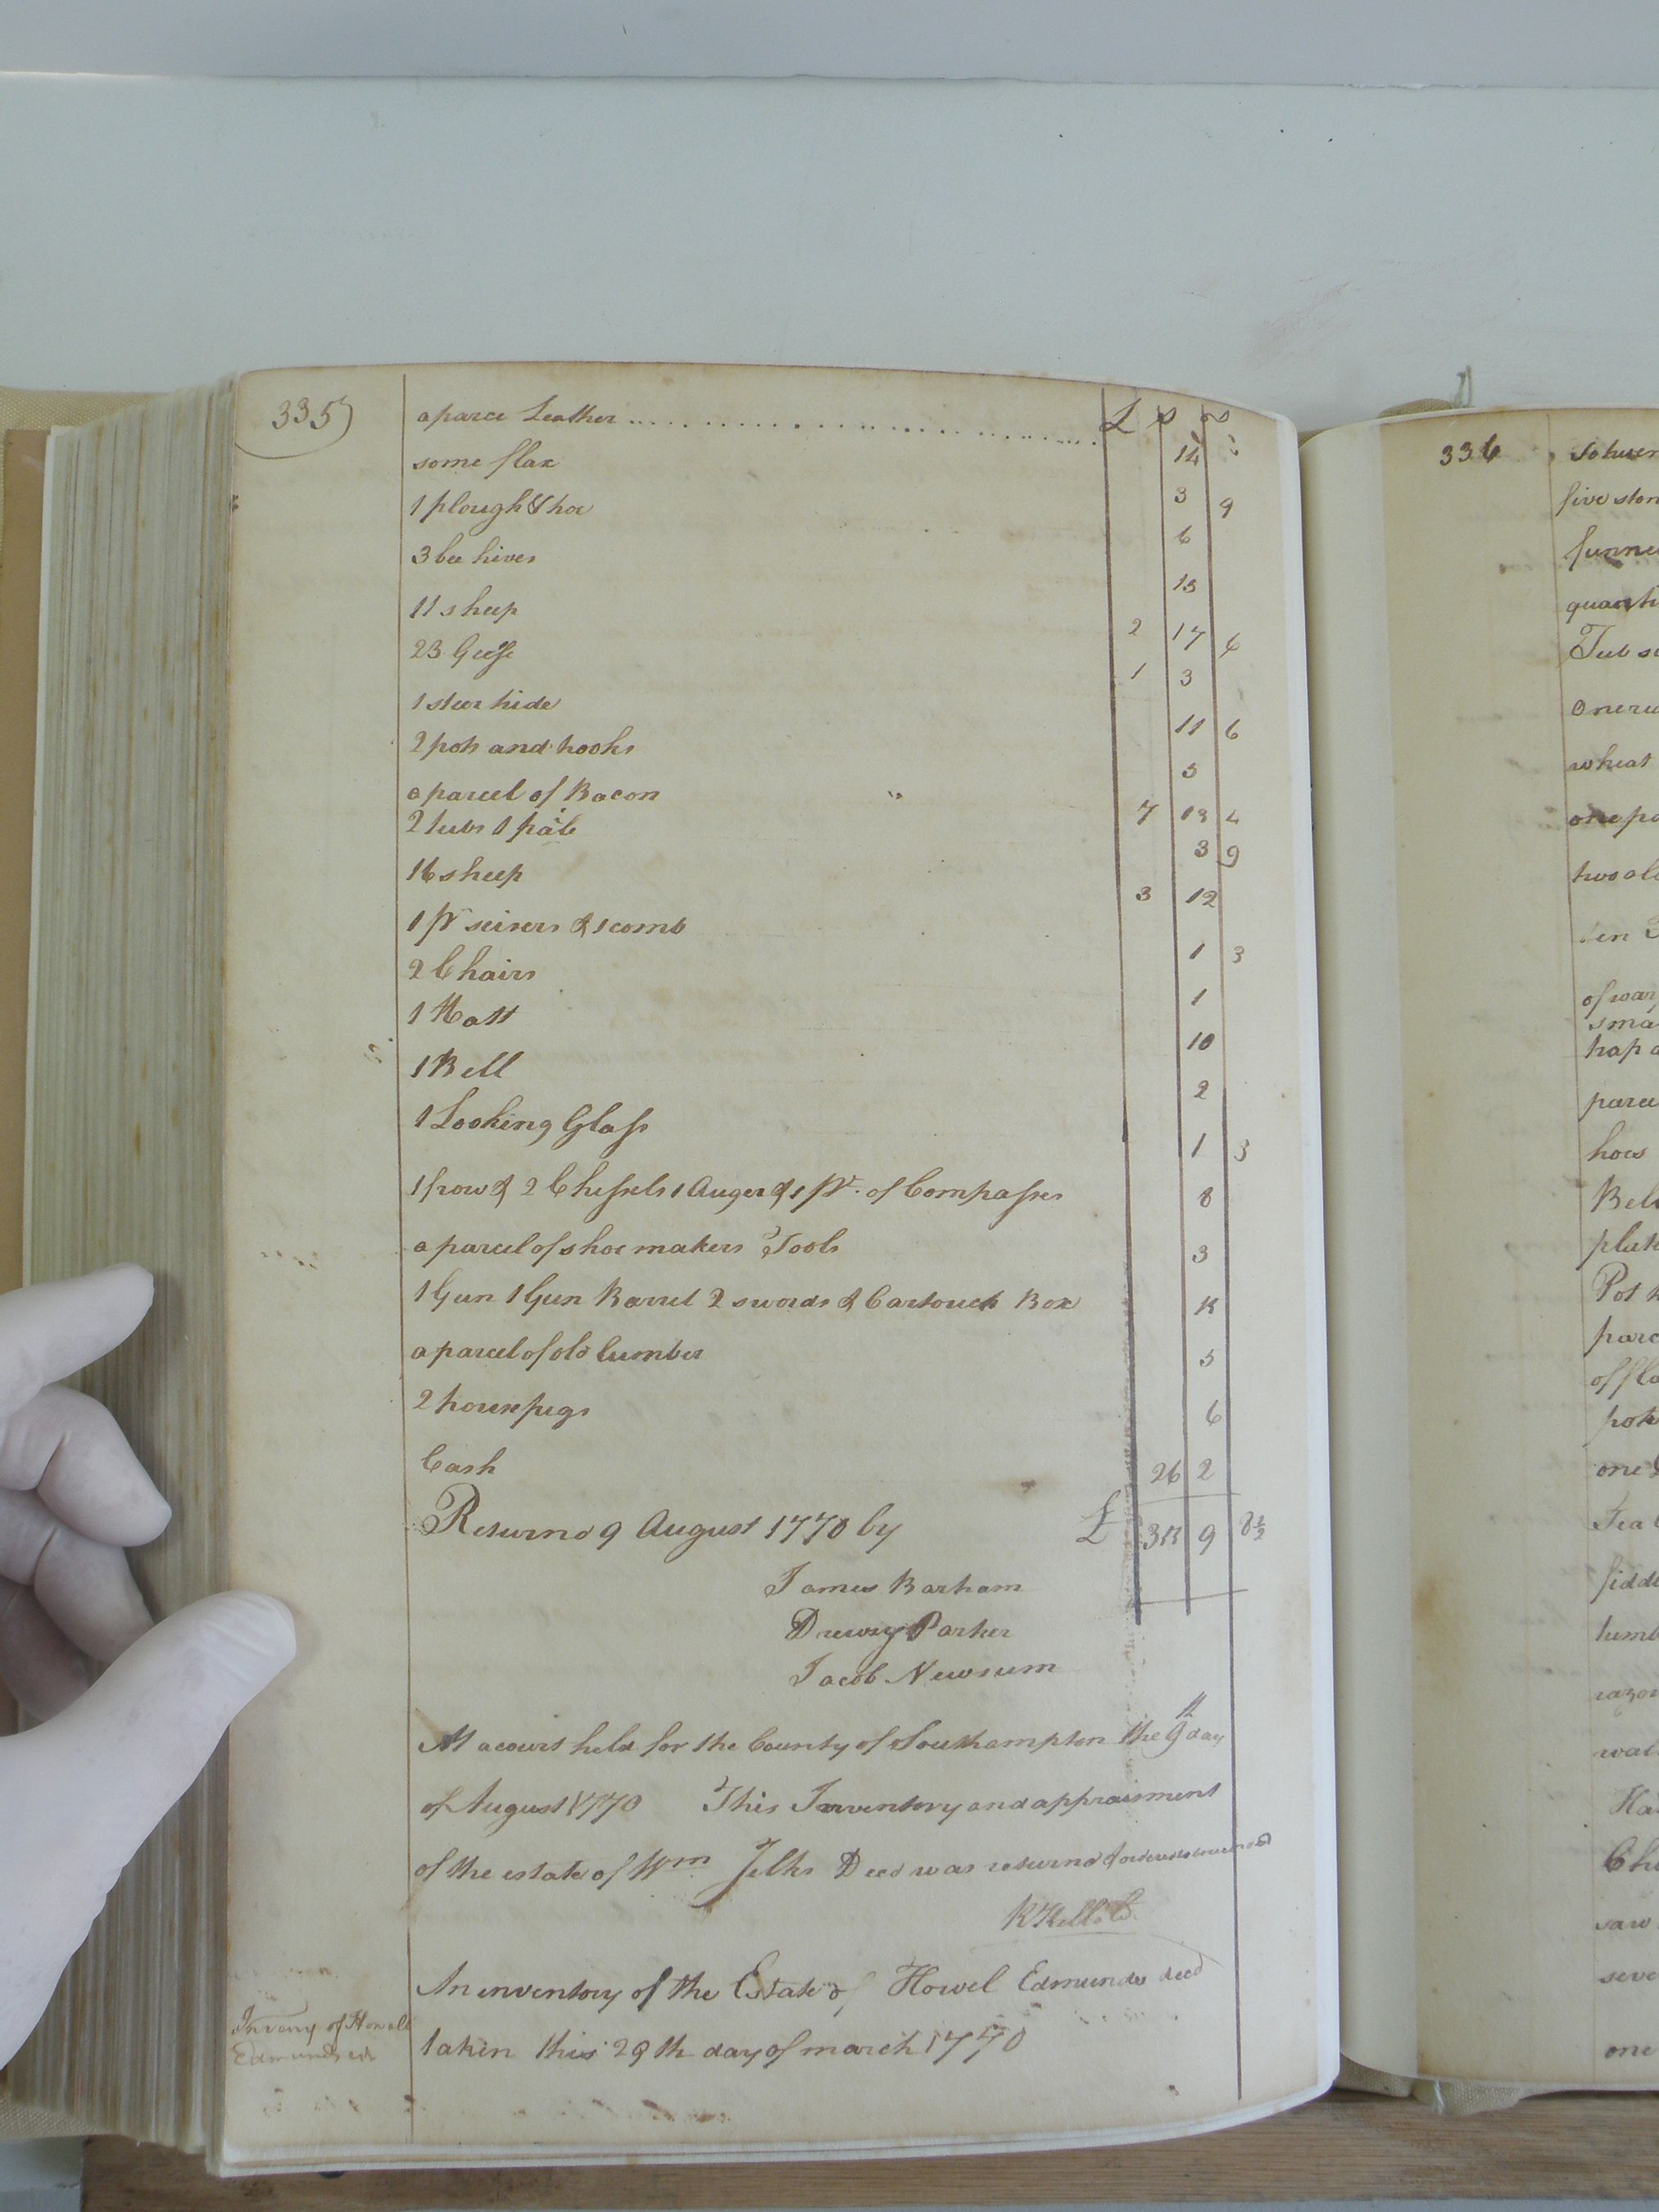 335)
a parce Leather ........................ £ s d
some flax 14
1 plough & hoe 3 9
3 bee hives 6
11 sheep 15
23 Geese 2 17 6
1 steer hide 1 3
2 pots and hooks 11 6
a parcel of Bacon 5
2 tubs 1 pale 7 13 4
16 sheep 3 9
1 pr scisers & 1 comb 3 12
2 Chairs 1 3
1 Hatt 1
1 Bell 10
1 Looking Glass 2
1 frow & 2 Chessels 1 Auger & 1 pr. of Compasses 1 3
a parcel of shoe makers Tools 8
1 Gun 1 Gun Barrel 2 swords & Cartouch Box 3
a parcel of old lumber
2 house pegs 5
Cash 6
26 2
Returnd 9 August 1770 by £ 9
James Barham
Drewry Parker
Jacob Newsum
At a court held for the County of Southampton the 9th day
of August 1770 This Inventory and appraisment
of the estate of Wm Jelks Decd was returnd & orderd to be recorded
An inventory of the Estate of Howel Edmunds decd
Inventy of Howell
Edmunds
taken this 29th day of march 1770
336
five ston
funne
quanti
Tub
wheat
one pa
two old
ten
of war
sma
parce
hoes
Bel
Pot
parc
of fla
pot
one
Tea
fiddl
lumb
razor
Ha
Cha
saw
seve
one